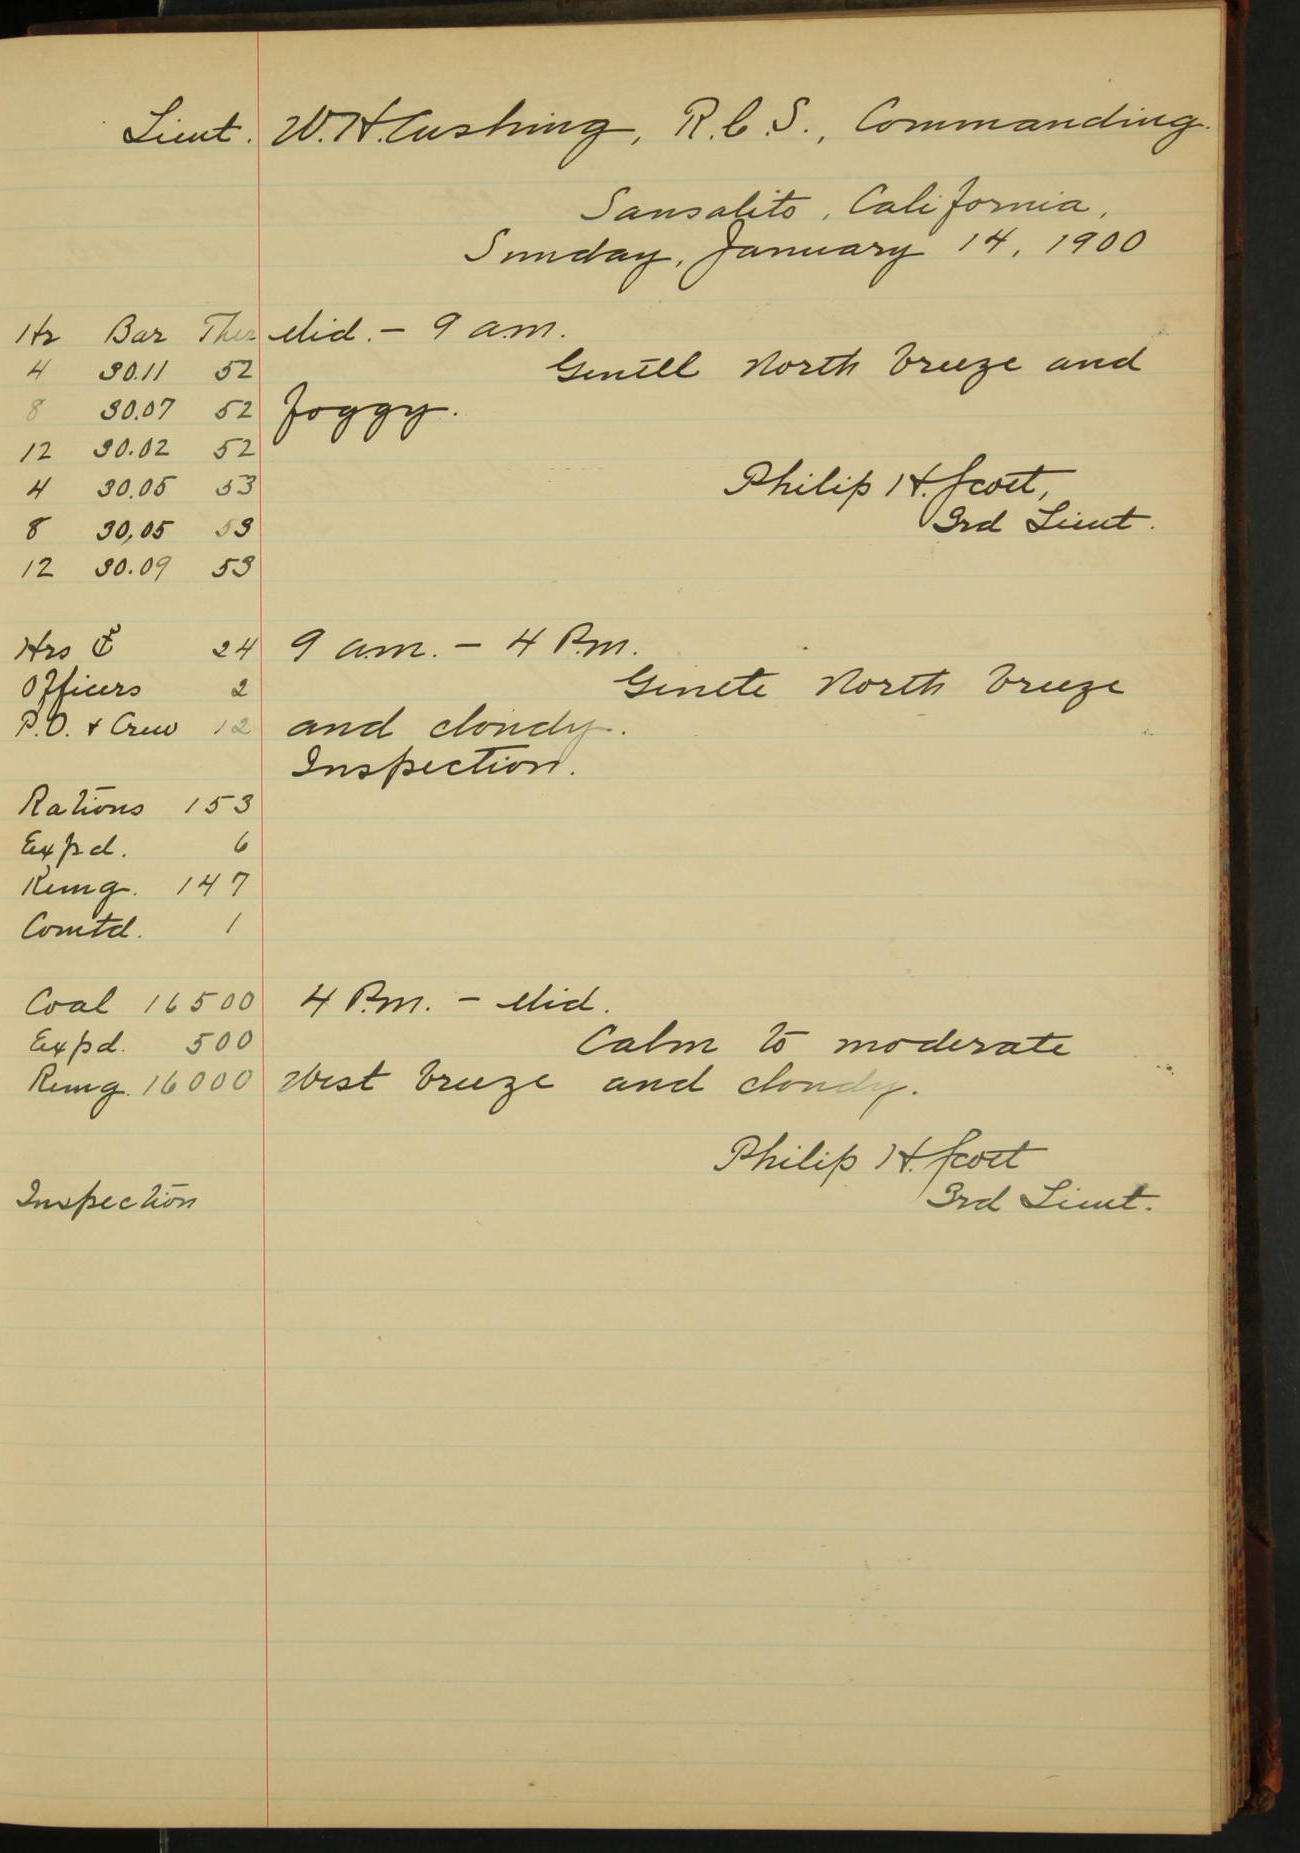 Lieut. W. H. Cushing, R.C.S., Commanding.
Sausalito, California,
Sunday, January 14, 1900
Hr Bar Ther Mid. – 9 a.m.
4 30.11 52 Gentle North breeze and
8 30.07 52 foggy.
12 30.02 52
4 30.05 53 Philip H. Scott,
8 30.05 53 3rd Lieut.
12 30.09 53
Hrs 24 9 a.m. – 4 P.m.
Officers 2 Gentle North breeze
P.O. & Crew 12 and cloudy.
Inspection.
Rations 153
Expd. 6
Remg. 147
Comtd. 1
Coal 16500 4 P.m. – Mid.
Expd. 500 Calm to moderate
Remg. 16000 West breeze and cloudy.
Philip H. Scott
Inspection 3rd Lieut.